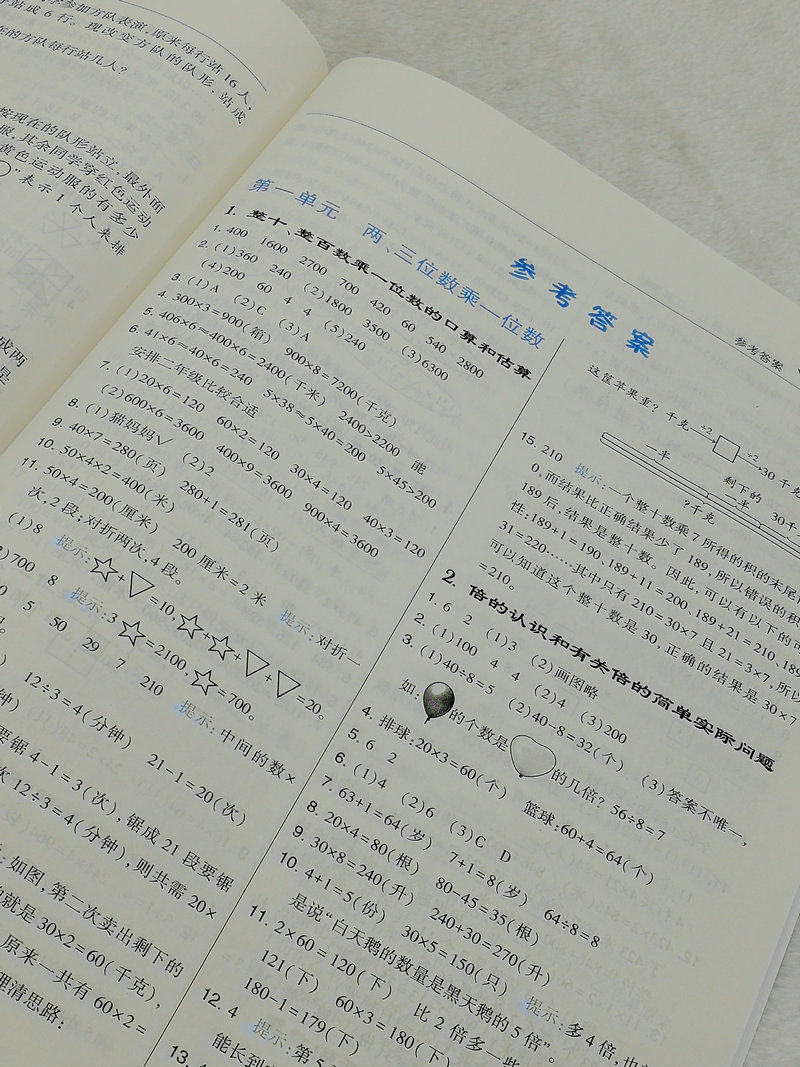 参加方队表演,原来每行站 16 人,
站成 6 行。现改变方队的队形,站成
在的方队每行站几人?
按现在的队形站立,最外面
服,其余同学穿红色运动
黄色运动服的有多少
”表示 1 个人来排
成两
是
参考答案
参考答案
第一单元 两、三位数乘一位数
1. 整十、整百数乘一位数的口算和估算
1. 400 1600 2700 700 420 60 540 2800
2. (1)360 240 (2)1800 3500 (3)6300
(4)200 60 4 4 (5)240
3. (1)A (2)C (3)A
4. 300×3=900(箱) 900×8=7200(千克)
5. 406×6≈400×6=2400(千米) 2400>2200 能
6. 41×6≈40×6=240 5×38≈5×40=200 5×45>200
安排二年级比较合适
7. (1)20×6=120 60×2=120 30×4=120 40×3=120
(2)600×6=3600 400×9=3600 900×4=3600
8. (1)猫妈妈√ (2)2
9. 40×7=280(页) 280+1=281(页)
10. 50×4×2=400(米)
11. 50×4=200(厘米) 200 厘米=2 米 提示:对折一
次,2 段;对折两次,4 段。
(1)8 提示:☆+▽=10,☆+☆+▽+▽=20。
700 8 提示:3☆=2100,☆=700。
5 50 29 7 210 提示:中间的数×
12÷3=4(分钟) 21-1=20(次)
钟)
要锯 4-1=3(次),锯成 21 段要锯
次 12÷3=4(分钟),则共需 20×
:如图,第二次卖出剩下的
就是 30×2=60(千克),
原来一共有 60×2=
理清思路:
这筐苹果重?千克 ÷2 ÷2 30 千克
一半 剩下的
一半 30千
?千克
15. 210 提示:一个整十数乘 7 所得的积的末尾
0,而结果比正确结果少了 189,所以错误的积
189 后,结果是整十数。因此,可以有以下的可
性:189+1=190、189+11=200、189+21=210、189
31=220……其中只有 210=30×7 且 21=3×7,所以
可以知道这个整十数是 30,正确的结果是 30×7
=210。
2. 倍的认识和有关倍的简单实际问题
1. 6 2 (1)3 (2)画图略
2. (1)100 4 4 (2)4 (3)200
3. (1)40÷8=5 (2)40-8=32(个) (3)答案不唯一,
如:的个数是的几倍? 56÷8=7
4. 排球:20×3=60(个) 篮球:60+4=64(个)
5. 6 2
6. (1)4 (2)6 (3)C D
7. 63+1=64(岁) 7+1=8(岁) 64÷8=8
8. 20×4=80(根) 80-45=35(根)
9. 30×8=240(升) 240+30=270(升)
10. 4+1=5(份) 30×5=150(只) 提示:多 4 倍,也
是说“白天鹅的数量是黑天鹅的 5 倍”。
11. 2×60=120(下) 比 2 倍多一些
121(下) 60×3=180(下)
180-1=179(下)
12. 4 提示:第 5
能长到
13. 4